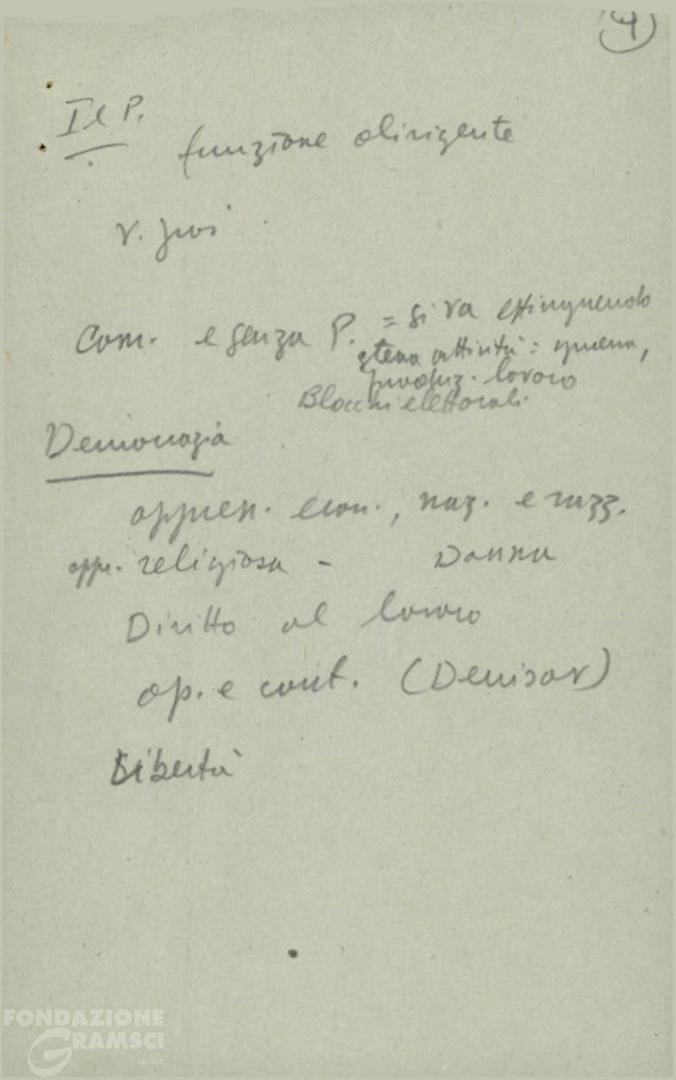 4
Il P.
funzione dirigente
v.
Com. e senza P. = si va estinguendo
stessa attività: guerra,
produz. lavoro
Blocchi elettorali
Democrazia
oppress. econ., naz. e razz.
oppr. religiosa - Donna
Diritto al lavoro
op. e cont. (Denisov)
Libertà
FONDAZIONE
GRAMSCI
onlus